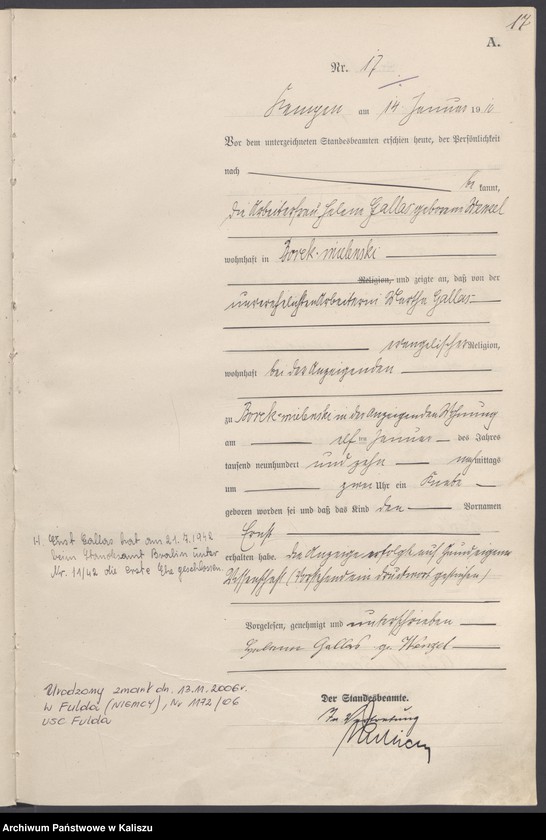 17
A.
Nr. 17
Kempen am 14 Januar 1910
Vor dem unterzeichneten Standesbeamten erschien heute, der Persönlichkeit
nach be kannt,
die Arbeiterfrau Helene Gallas geborene Wenzel
wohnhaft in Borek-mielenski
Religion, und zeigte an, daß von der
unverehelichten Arbeiterin Martha Gallas
evangelischer Religion,
wohnhaft bei der Anzeigenden
zu Borek-mielenski in der Anzeigenden Wohnung
am elften Januar des Jahres
tausend neunhundert und zehn nachmittags
um zwei Uhr ein Knabe
geboren worden sei und daß das Kind den Vornamen
Ernst
erhalten habe. Die Anzeige erfolgt auf Grund eigener
Wissenschaft (Vorstehend ein Druckwort gestrichen)
Vorgelesen, genehmigt und unterschrieben
Helene Gallas g. Wenzel
Der Standesbeamte.
In Vertretung
H. Ernst Gallas hat am 21.7.1942
beim Standesamt Bralin unter
Nr. 11/42 die erste Ehe geschlossen.
Urodzony zmarł dn. 13.11.2006r.
w Fulda (NIEMCY), Nr 1172/06
USC Fulda
Archiwum Państwowe w Kaliszu